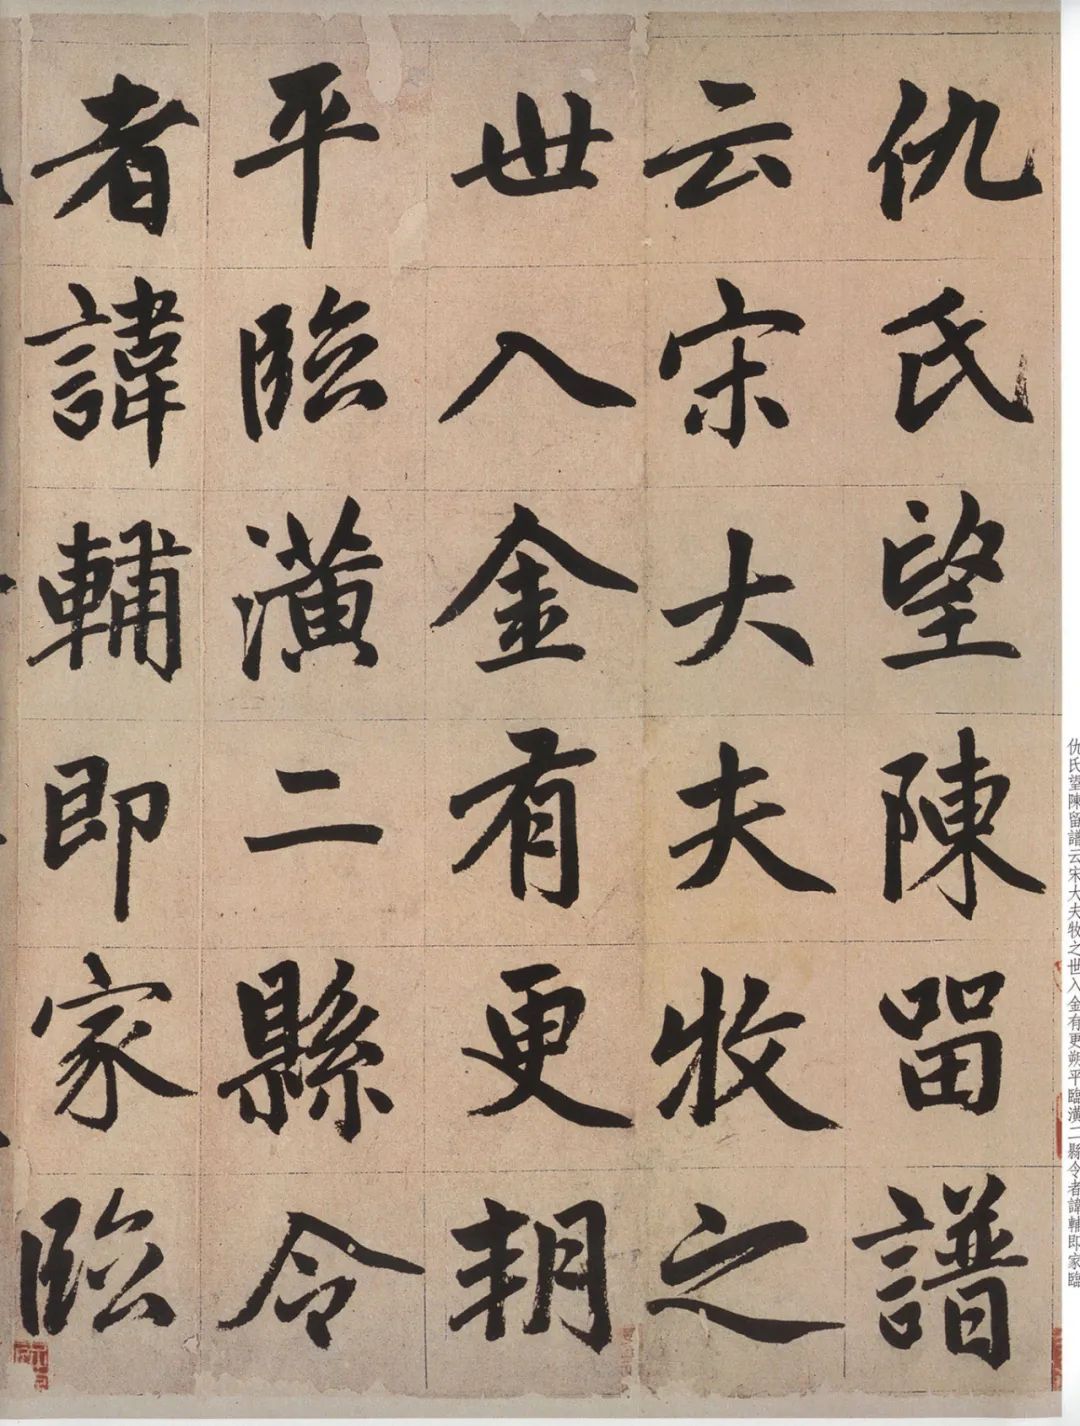 仇氏望陳留譜
云宋大夫牧之
世入金有更朔
平臨潢二縣令
者諱輔即家臨
仇氏望陳留譜云宋大夫牧之世入金有更朔平臨潢二縣令者諱輔即家臨